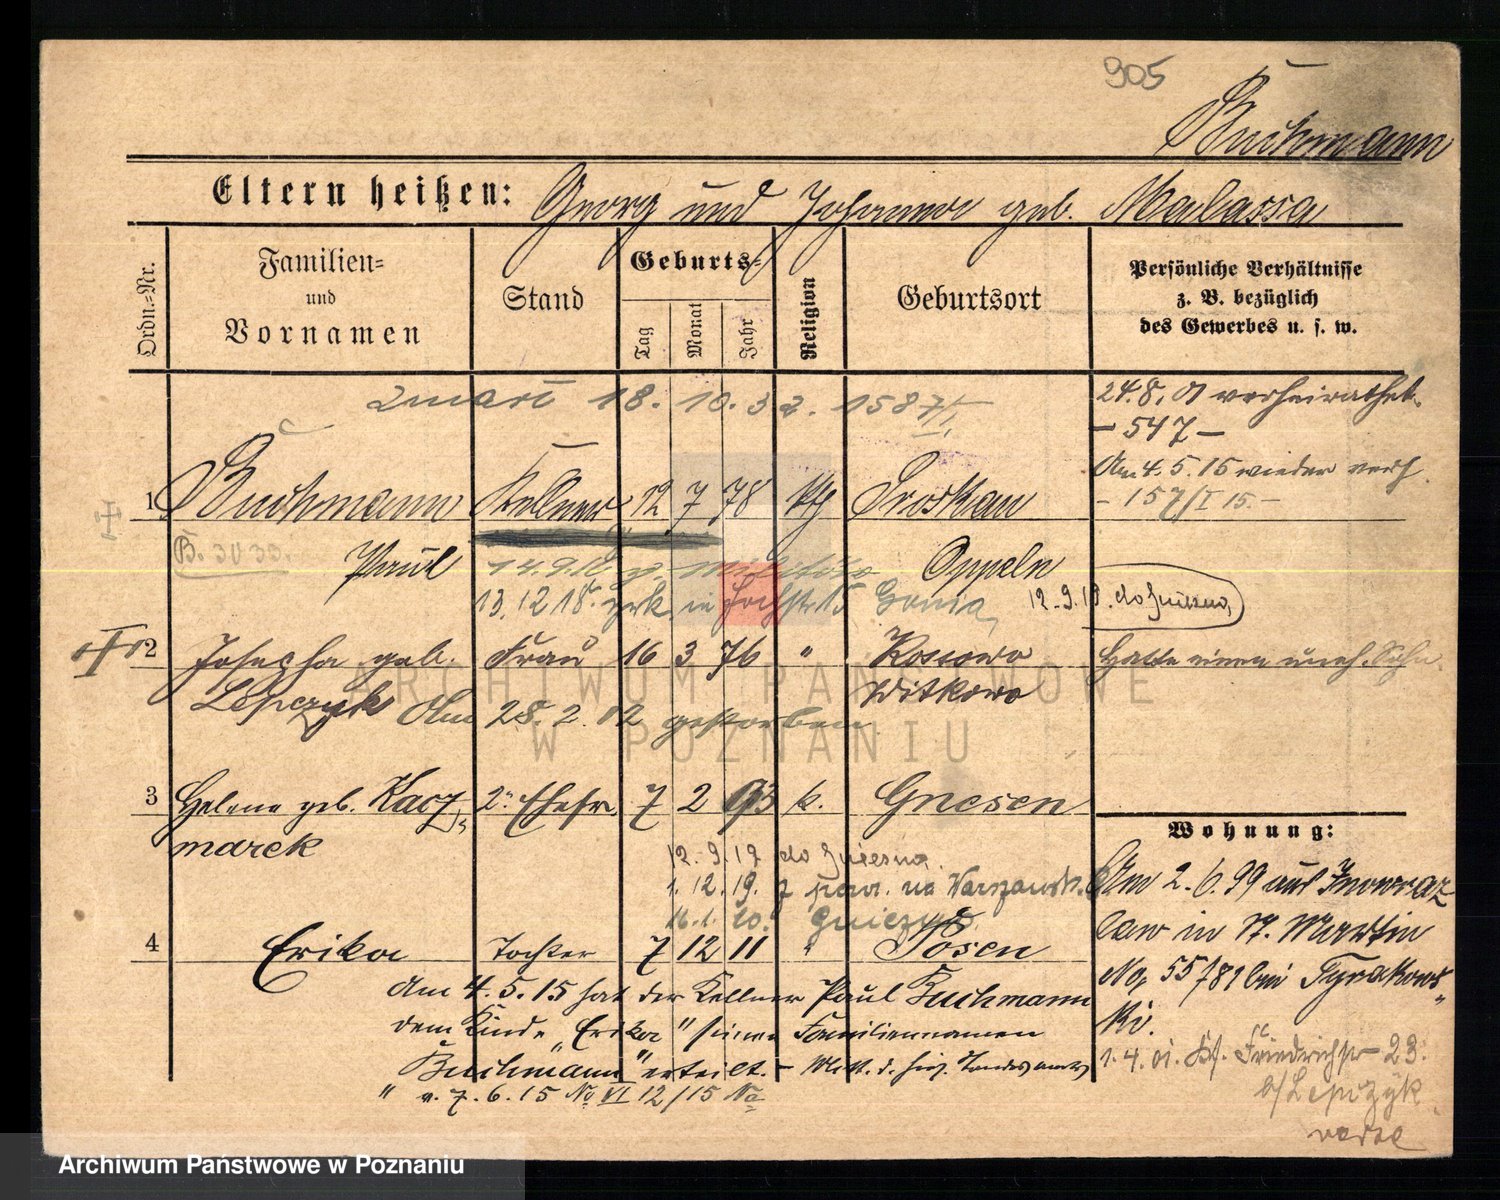 905
Buchmann
Eltern heißen: Georg und Johanna geb. Malassa
Ordn.-Nr.
Familien-
und
Vornamen
Stand
Geburts-
Tag
Monat
Jahr
Religion
Geburtsort
Persönliche Verhältnisse
z. B. bezüglich
des Gewerbes u. s. w.
zmarł 18. 10. 32. 1587/II
24.8.01 verheirathet
- 547 -
Am 4.5.15 wieder verh.
- 157/I 15. -
1 Buchmann Kellner 12 7 78 kth Proskau
B. 3030. Paul
14.9.18
Oppeln
13.12.18. in Hochstr 15
12.9.19. do Gniezna
2 Josepha geb. Frau 16 3 76 " Kossowo
Hatte einen uneh. Sohn.
Lepczyk Witkowo
Am 28. 2. 02 gestorben
3 Helene geb. Kacz 2te Ehefr. 7 2 93 k. Gnesen
marek
Wohnung:
12. 9. 19 do Gniezna
1. 12. 19. z pow. na Warszawsk.
16. 1. 20. Gniezna
Am 2. 6. 99 aus Inowraz
law in St. Martin
4 Erika Tochter 7 12 11 " Posen
No. 55/781 bei Tyrakows
ki.
Am 4. 5. 15 hat der Kellner Paul Buchmann
dem Kinde "Erika" seinen Familiennamen
Buchmann" erteilt. - Mitt. d. hies. Standesamts
" v. 7. 6. 15 No VI 12/15 No
1. 4. 01. Friedrichstr 23.
b/Lepczyk
verse
ARCHIWUM PAŃSTWOWE
W POZNANIU
Archiwum Państwowe w Poznaniu